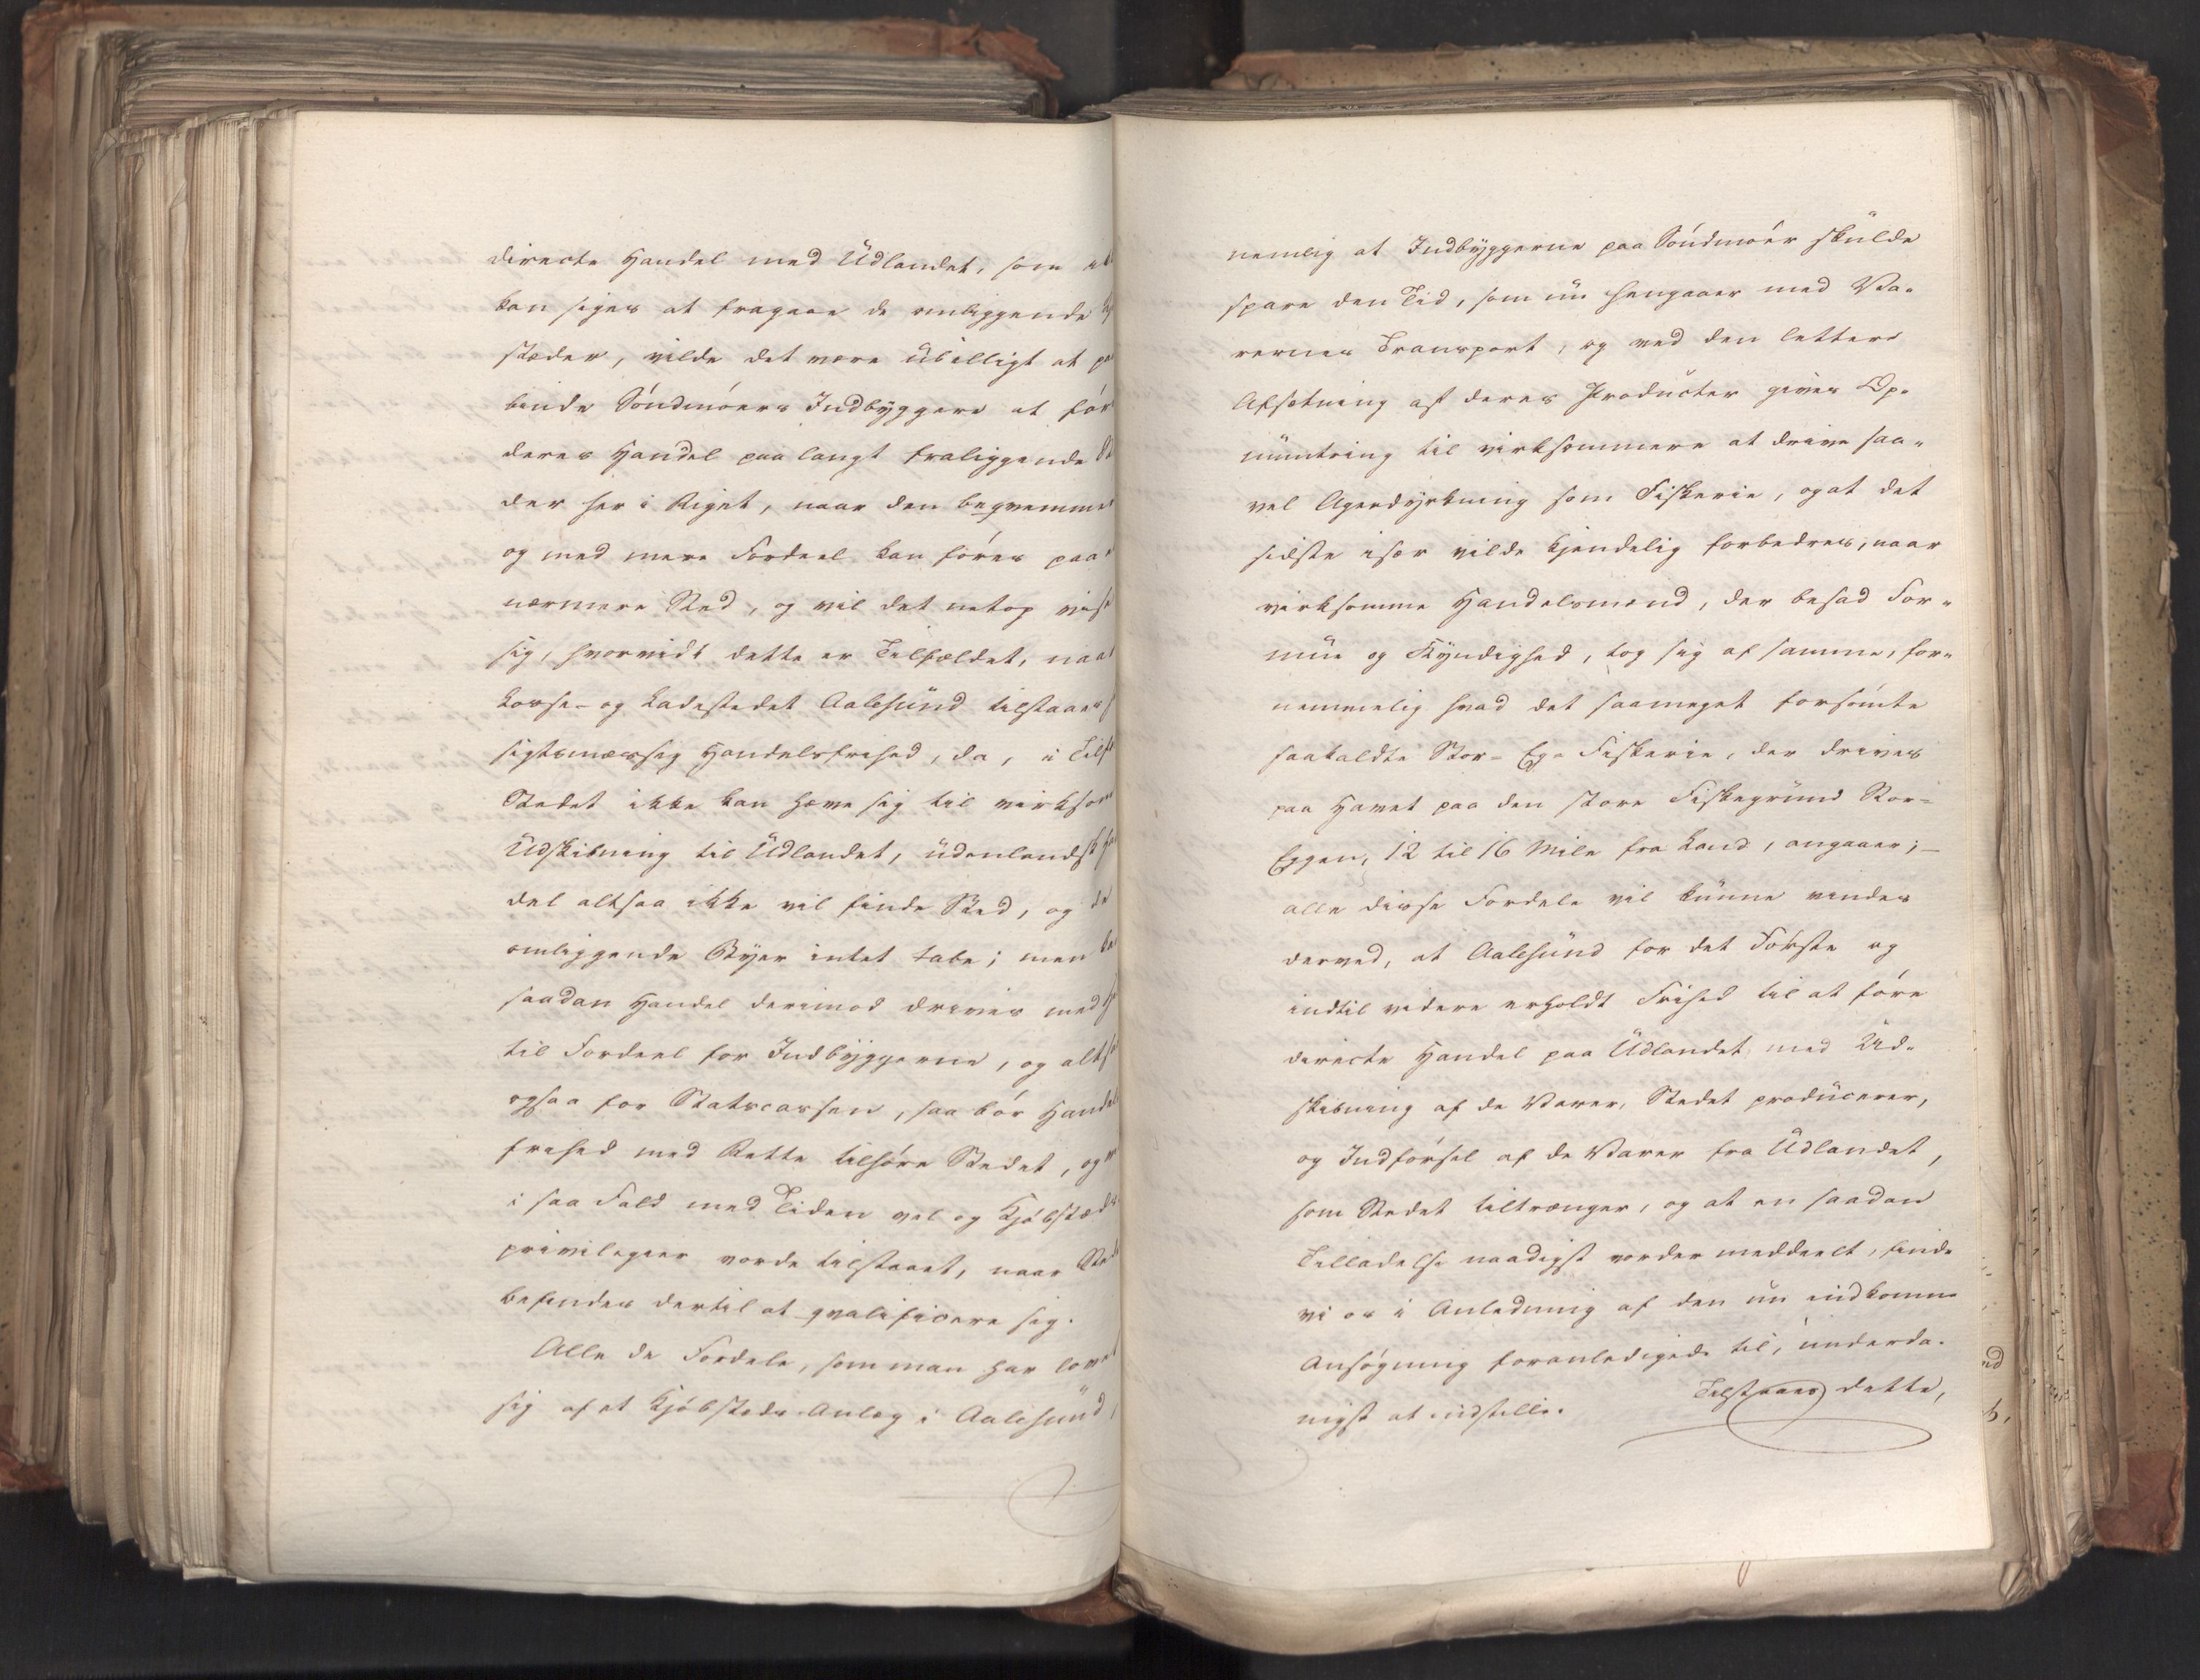 directe Handel med Udlandet, som
kan siges at fragaae de omliggende
stæder, vilde det være übilligt at paa
binde Söndmöers Indbyggere at för
deres Handel paa langt fraliggende
der her i Riget, naar den beqvemmere
og med mere Fordeel kan föres paa
nærmere Sted, og vil det netop vise
sig, hvorvidt dette er Tilfældet, naar
Losse- og Ladestedet Aalesund tilstaaes
sigtsmæssig Handelsfrihed, da, i Tilf
Stedet ikke kan hæve sig til virksom
Udskibning til Udlandet, udenlandsk Han
del altsaa ikke vil finde Sted, og de
omliggende Byer intet tabe; men
saadan Handel derimod drives med
til Fordeel for Indbyggerne, og altsaa
ogsaa for Statscassen, saa bör Handels
frihed med Rette tilhöre Stedet, og
i saa Fald med Tiden vel og Kjöbstæds
privilegier vorde tilstaaet, naar Stedet
befindes dertil at qvalificere sig.
Alle de Fordele, som man har lovet
sig af et Kjöbsteds-Anlæg i Aalesund,
nemlig at Indbyggerne paa Söndmöer skulde
spare den Tid, som nu hengaaer med Va-
rernes Transport, og ved den lettere
Afsætning af deres Producter gives Op-
muntring til virksommere at drive saa-
vel Agerdyrkning som Fiskerie, og at det
sidste især vilde kjendelig forbedres, naar
virksomme Handelsmænd, der besad For-
mue og Kyndighed, tog sig af samme, for-
nemmelig hvad det saameget forsömte
saakaldte Stor-Eg-Fiskerie, der drives
paa Havet paa den store Fiskegrund Stor-
Eggen, 12 til 16 Mile fra Land, angaaer; –
alle disse Fordele vil kunne vindes
derved, at Aalesund for det Förste og
indtil videre erholdt Frihed til at före
directe Handel paa Udlandet med Ud-
skibning af de Varer, Stedet producerer,
og Indförsel af de Varer fra Udlandet,
som Stedet tiltrænger, og at en saadan
Tilladelse naadigst vorder meddeelt, finde
vi os i Anledning af den nu indkomne
Ansögning foranledigede til, underda-
nigst at indstille.
Tilstaaes dette,